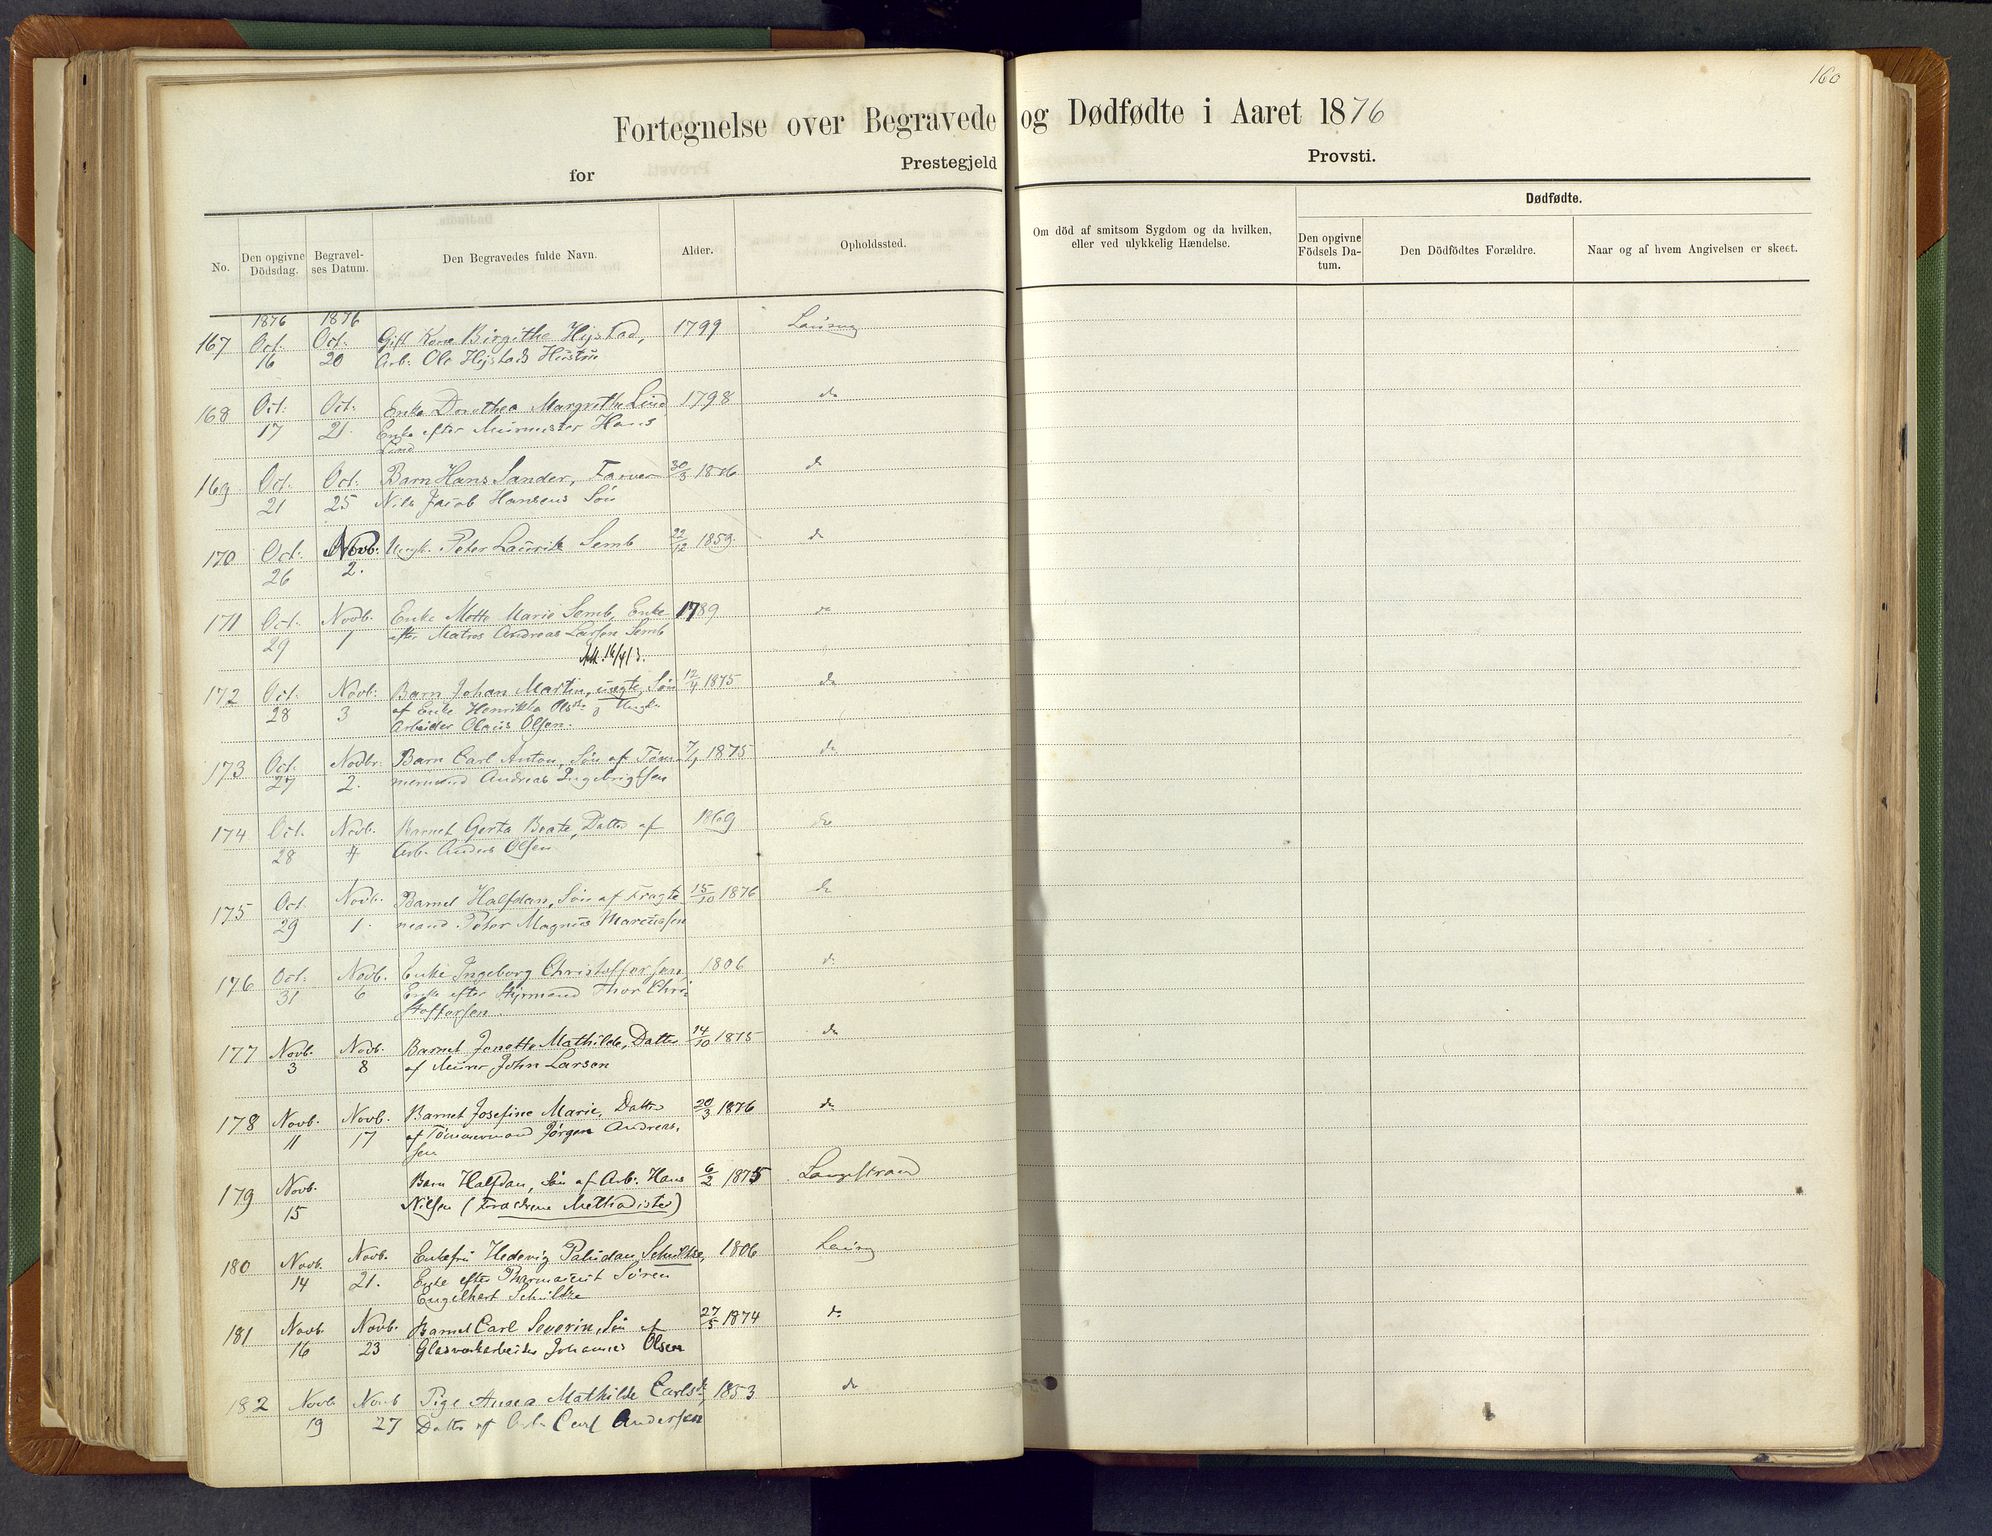 160
Fortegnelse over Begravede og Dødfødte i Aaret 1876
for Prestegjeld Provsti.
No. Den opgivne Dödsdag. Begravelses Datum. Den Begravedes fulde Navn. Alder. Opholdssted. Om död af smitsom Sygdom og da hvilken, eller ved ulykkelig Hændelse. Dødfødte.
Den opgivne Födsels Datum. Den Dödfödtes Forældre. Naar og af hvem Angivelsen er skeet.
1876 1876
167 Oct. Oct. Gift Birgithe Hijstad, 1799 Laurvig
16 20 Arb. Ole Hijstads Hustru
168 Oct. Oct. Enke Dorothea Margrethe Lind 1798 do
17 21. Enke efter Murmester Hans
Lind
169 Oct. Oct. Barn Hans Sander, Farver 30/3 1876 do
21 25 Nils Jacob Hansens Søn
170 Oct. Novb. Ungk. Peter Laurits Semb 22/12 1859. do
26 2.
171 Oct. Novb. Enke Marie Semb, Enke 1789 do
29 1 efter Matros Andreas Larsen Semb
172 Oct. Novb. Barn Johan Martin, uægte Søn 12/4 1875 do
28 3 af Enke Henrikka Olsdtr og Ungk.
Arbeider Olaus Olsen.
173 Oct. Novbr. Barn Carl Anton, Søn af Tøm- 1875 do
27 2. mermand Andreas Ingebrigtsen
174 Oct. Novb. Barnet Gerta Beate, Datter af 1869 do
28 4 Arb. Anders Olsen
175 Oct. Novb. Barnet Halfdan, Søn af Fragte 15/10 1876 do
29 1. mand Peter Magnus Marcussen
176 Oct. Novb. Enke Ingeborg Christoffersen, 1806 do
31 6 Enke efter Styrmand Thor Chri
stoffersen.
177 Novb. Novb. Barnet Janette Mathilde, Datter 14/10 1875 do
3 8 af Murer John Larsen
178 Novb. Novb. Barnet Josefine Marie, Datter 20/3 1876 do
11 17 af Tømmermand Jørgen Andreas.
sen
179 Novb. Barn Halfdan, Søn af Arb. Hans 6/2 1875 Langestrand
15 Nilsen (Forældrene Methodister)
180 Novb. Novb. Enkefru Hedevig Paludan Schultze, 1806 Laurvig
14 21. Enke efter Pharmaceut Søren
Engelhert Schultze
181 Novb. Novb. Barnet Carl Severin, Søn af 27/5 1874 do
16 23 Glasværkarbeider Johannes Olsen
182 Novb. Novb Pige Anna Mathilde Carlsdtr, 1853 do
19 27 Datter af Arb. Carl Andersen